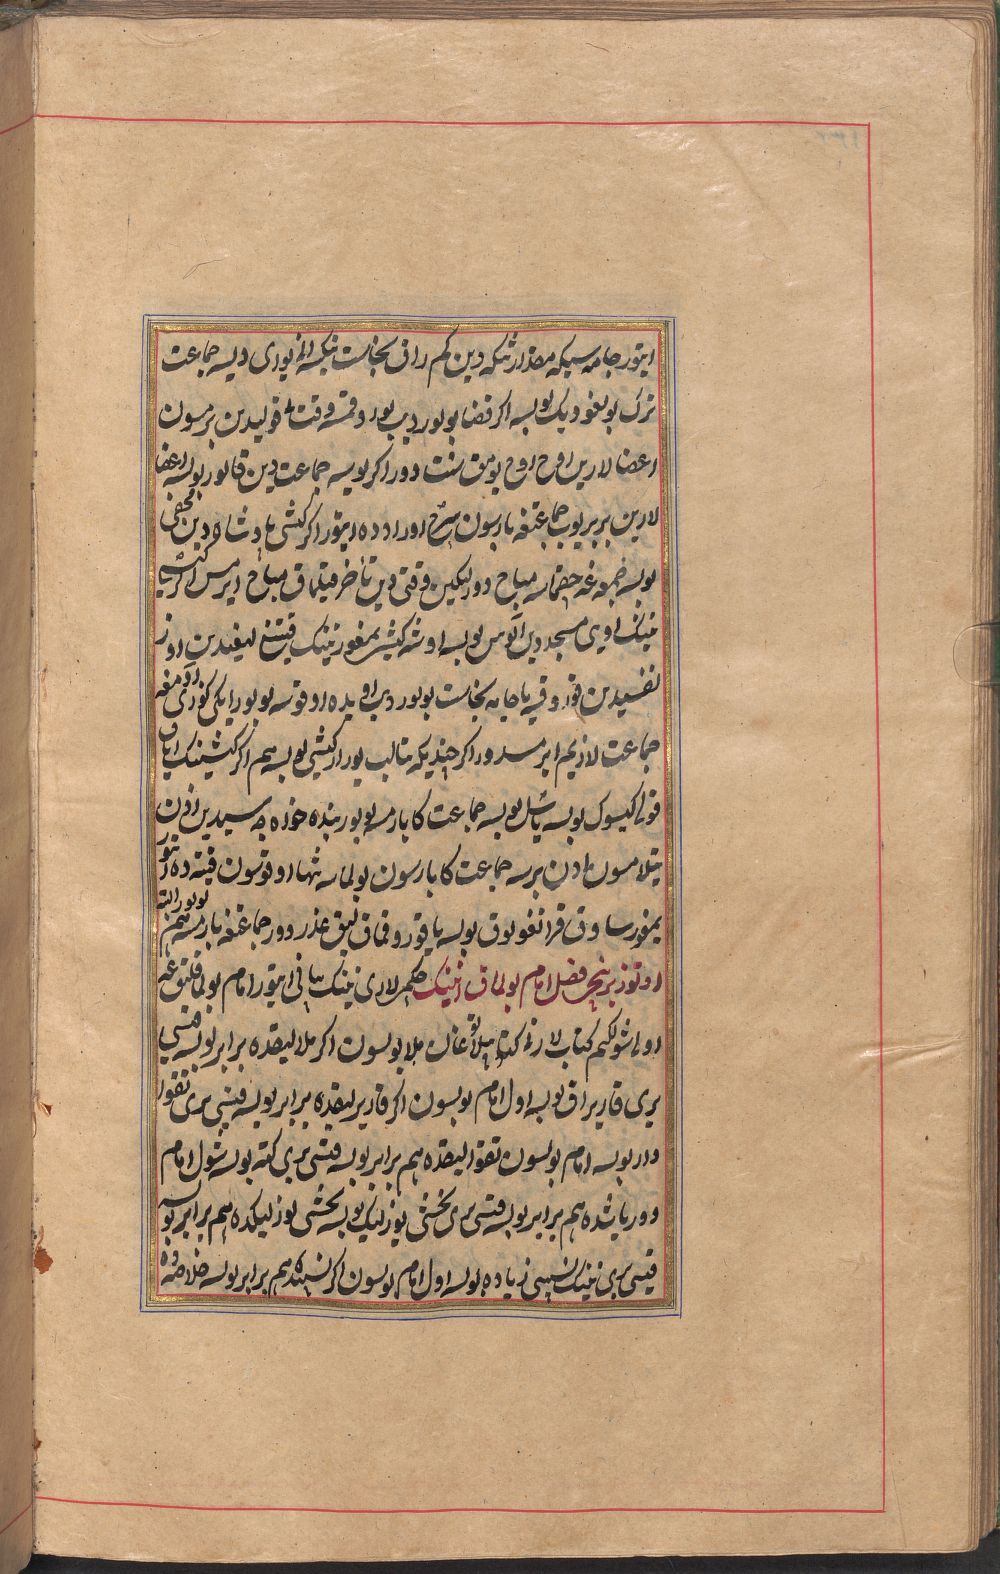 ایتور جامه سیکه مقدار شکه دین کم راق نجاست تیکسه الیب یوردی دیسه جماعت
ترک بولغودیک بولسه اکر قضا بولور دیب بود وقته وقت قولیدن برمسون
اعضا لارین اوچ اوچ یومق سنت دور اکر یوسه جماعت دین قالور بولسه اعضا
لارین بربر یوب جماعتغه بارسون شرح اوراد ده ایتور اکر کشی پادشاه دین مخفی
بولسه جمعه غه چقماسه مباح دور لیکن وقتی دین تأخر قیلماق مباح ایرمس اکر کشی
نینک اوی مسجد دین آلوس بولسه اوشه کیشی یمغور نینک قتیغ لیغیدین اوز
نفسیدین قورقسه یا جامه نجاست بولور دیب اویده اوقوسه بولور ایکی کوزی اوغه
جماعت لازیم ایرمسدور اکر چندیکه تالیب یورار کیشی بولسه هم اکر کشینک ایاق
قولی کیسوک بولسه یا شل بولسه جماعت کا بارمسه بولور بنده خوجه سیدین اذن
تیلامسون اذن برسه جماعت کا بارسون بولماسه تنها اوقوسون قنیه ده ایتور
یمغور ساوق قرانغولوق بولسه یا قورقماق لیق عذر دور جماعتغه بارمسه هم بولور البته
اوتوز برینجی فصل امام بولماق نینک حکم لاری نینک بیانی ایتور امام بولماقلیق غه
اولی شول کیم کتاب لارنی کتاب بیلاتورغان ملا بولسون اکر ملالیقده برابر بولسه قیسی
بری قاریراق بولسه اول امام بولسون اکر قاریلیقده برابر بولسه قیسی بری تقوا
دار بولسه امام بولسون تقوالیقده هم برابر بولسه قیسی بری کته بولسه شول امام
دور یاشده هم برابر بولسه قیسی بری یخشی یوزلیک بولسه یخشی یوزلیکده هم برابر بولسه
قیسی بری نینک نسبی زیاده بولسه اول امام بولسون اکر نسبده هم برابر بولسه خلاصه ده